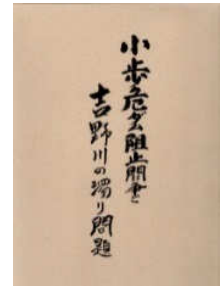 小歩危ダム阻止闘争と
吉野川の濁り問題